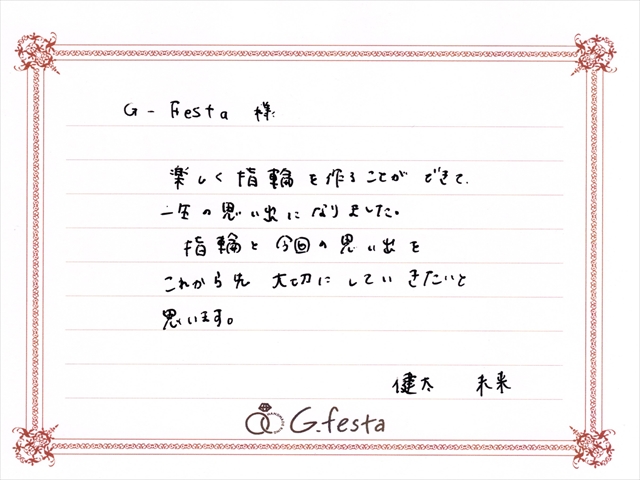 G-Festa 様
楽しく指輪を作ることができて、
一生の思い出になりました。
指輪と今回の思い出を
これから先 大切にしていきたいと
思います。
健太 未来
G.festa